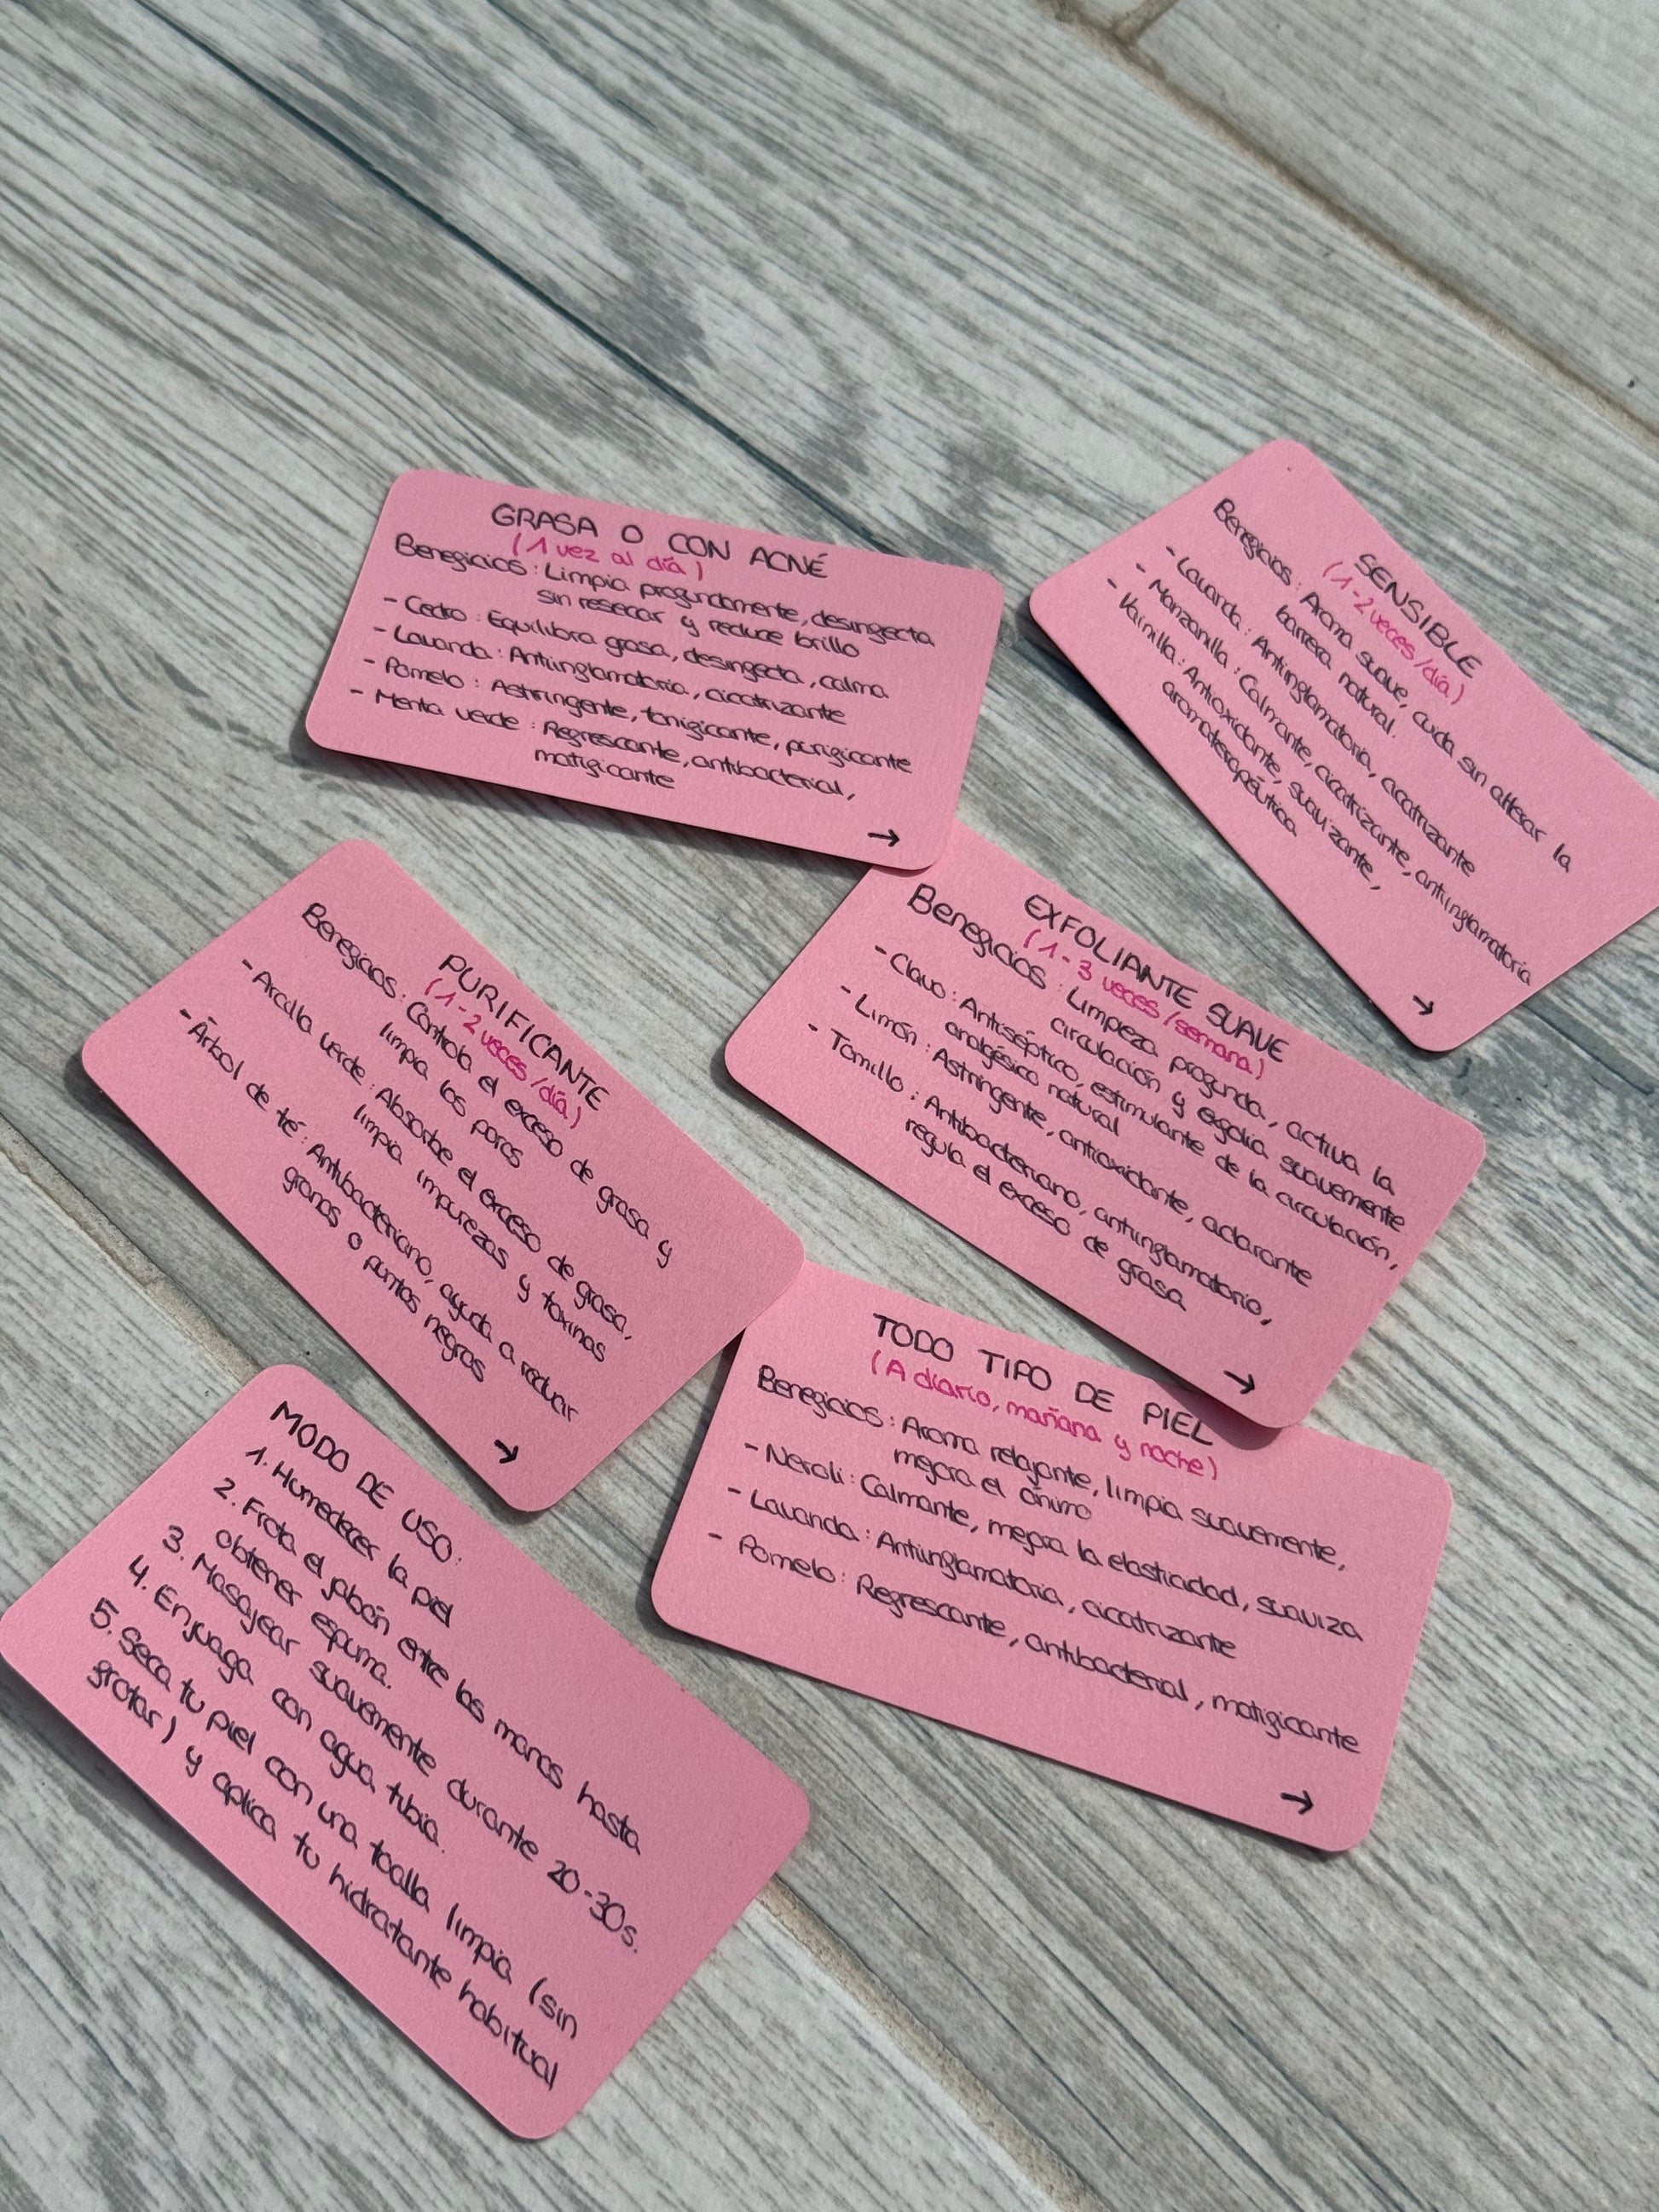 GRASA O CON ACNÉ
(1 vez al día)
Beneficios: Limpia profundamente, desinfecta
sin resecar y reduce brillo
- Cedro: Equilibra grasa, desinfecta, calma
- Lavanda: Antiinflamatoria, cicatrizante
- Pomelo: Astringente, tonificante, purificante
- Menta verde: Refrescante, antibacterial,
matificante
→
SENSIBLE
(1-2 veces/día)
Beneficios: Aroma suave, cuida sin alterar la
barrera natural.
- Lavanda: Antiinflamatoria, cicatrizante
- Manzanilla: Calmante, cicatrizante, antiinflamatoria
- Vainilla: Antioxidante, suavizante,
aromaterapéutica
→
EXFOLIANTE SUAVE
(1-3 veces/semana)
Beneficios: Limpeza profunda, activa la
circulación y exfolia suavemente
- Clavo: Antiséptico, estimulante de la circulación,
analgésico natural
- Limón: Astringente, antioxidante, aclarante
- Tomillo: Antibacteriano, antiinflamatorio,
regula el exceso de grasa
→
PURIFICANTE
(1-2 veces/día)
Beneficios: Controla el exceso de grasa y
limpia los poros
- Arcilla verde: Absorbe el exceso de grasa,
limpia impurezas y toxinas
- Árbol de té: Antibacteriano, ayuda a reducir
granos o puntos negros
→
TODO TIPO DE PIEL
(A diario, mañana y noche)
Beneficios: Aroma relajante, limpia suavemente,
mejora el ánimo
- Neroli: Calmante, mejora la elasticidad, suaviza
- Lavanda: Antiinflamatoria, cicatrizante
- Pomelo: Refrescante, antibacterial, matificante
→
MODO DE USO:
1. Humedecer la piel
2. Frota el jabón entre las manos hasta
obtener espuma.
3. Masajear suavemente durante 20-30s.
4. Enjuaga con agua tibia.
5. Seca tu piel con una toalla limpia (sin
frotar) y aplica tu hidratante habitual